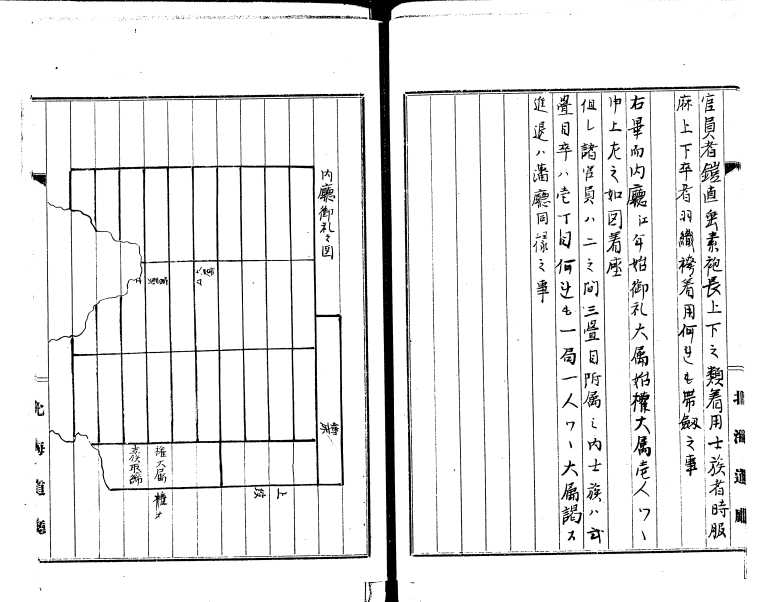 官員者鎧直垂素袍長上下之類着用士族者時服
麻上下卒者羽織袴着用何レも帯劔之事
右畢而内廳江年始御礼大属始権大属壱人ツヽ
申上左之如図着座
但し諸官員ハ二之間三畳目所属之内士族ハ弐
畳目卒ハ壱丁目何レも一局一人ツヽ大属謁ス
進退ハ藩廳同様之事
北海道廳
内廳御礼之図
権大属
北海道廳